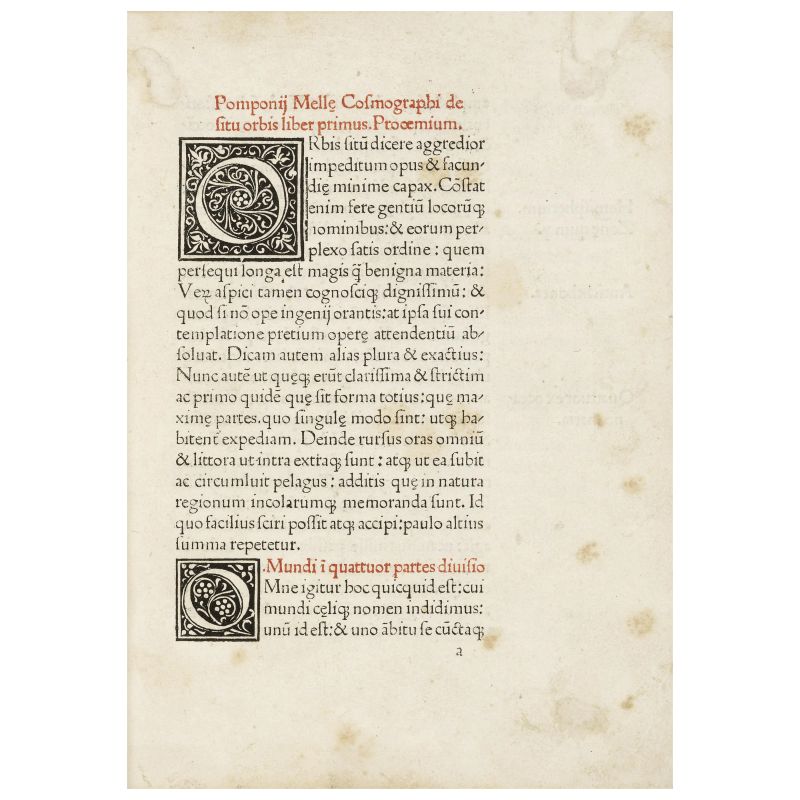 Pomponij Mellę Cosmographi de
situ orbis liber primus. Prooemium.
ORbis sitū dicere aggredior
impeditum opus & facun-
dię minime capax. Cōstat
enim fere gentiū locorūq;
nominibus: & eorum per-
plexo satis ordine: quem
persequi longa est magis q̄ benigna materia:
Veꝝ aspici tamen cognosciq; dignissimū: &
quod si nō ope ingenij orantis: at ipsa sui con-
templatione pretium operę attendentiū ab-
soluat. Dicam autem alias plura & exactius:
Nunc autē ut quęq; erūt clarissima & strictim
ac primo quidē quę sit forma totius: quę ma-
ximę partes. quo singulę modo sint: utq; ha-
bitent expediam. Deinde rursus oras omniū
& littora ut intra extraq; sunt: atq; ut ea subit
ac circumluit pelagus: additis quę in natura
regionum incolarumq; memoranda sunt. Id
quo facilius sciri possit atq; accipi: paulo altius
summa repetetur.
.Mundi ī quattuor partes diuisio
OMne igitur hoc quicquid est: cui
mundi cęliq; nomen indidimus:
unū id est: & uno ābitu se cūctaq;
a